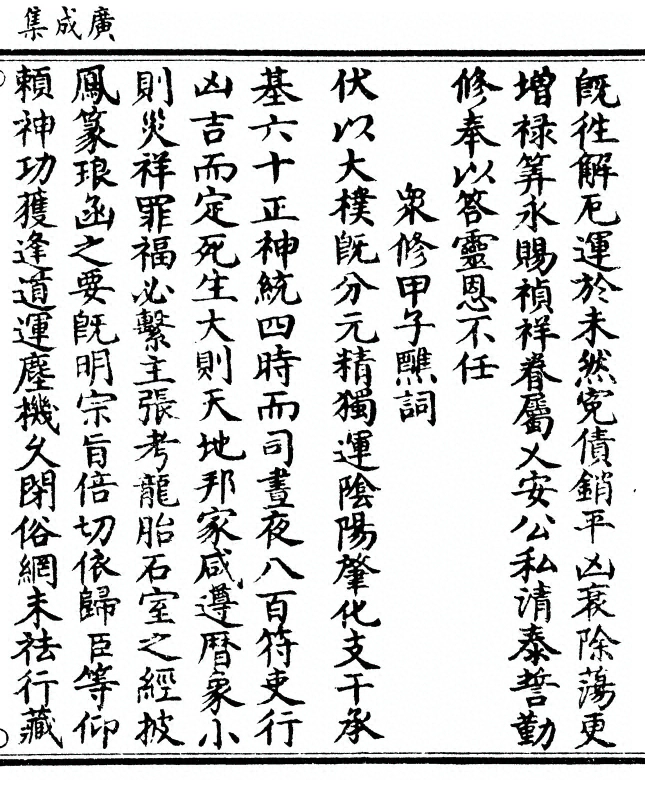 廣成集
旣徃解厄運於未然寃債銷平凶衰除蕩更
增禄筭永賜禎祥眷屬乂安公私清泰誓勤
修奉以答靈恩不任
衆修甲子醮詞
伏以大樸旣分元精獨運陰陽肇化支干承
基六十正神統四時而司晝夜八百符吏行
凶吉而定死生大則天地邦家咸遵曆象小
則災祥罪福必繫主張考龍胎石室之經披
鳳篆琅函之要旣明宗旨倍切依歸臣等仰
頼神功獲逢道運塵機久閉俗網未祛行藏